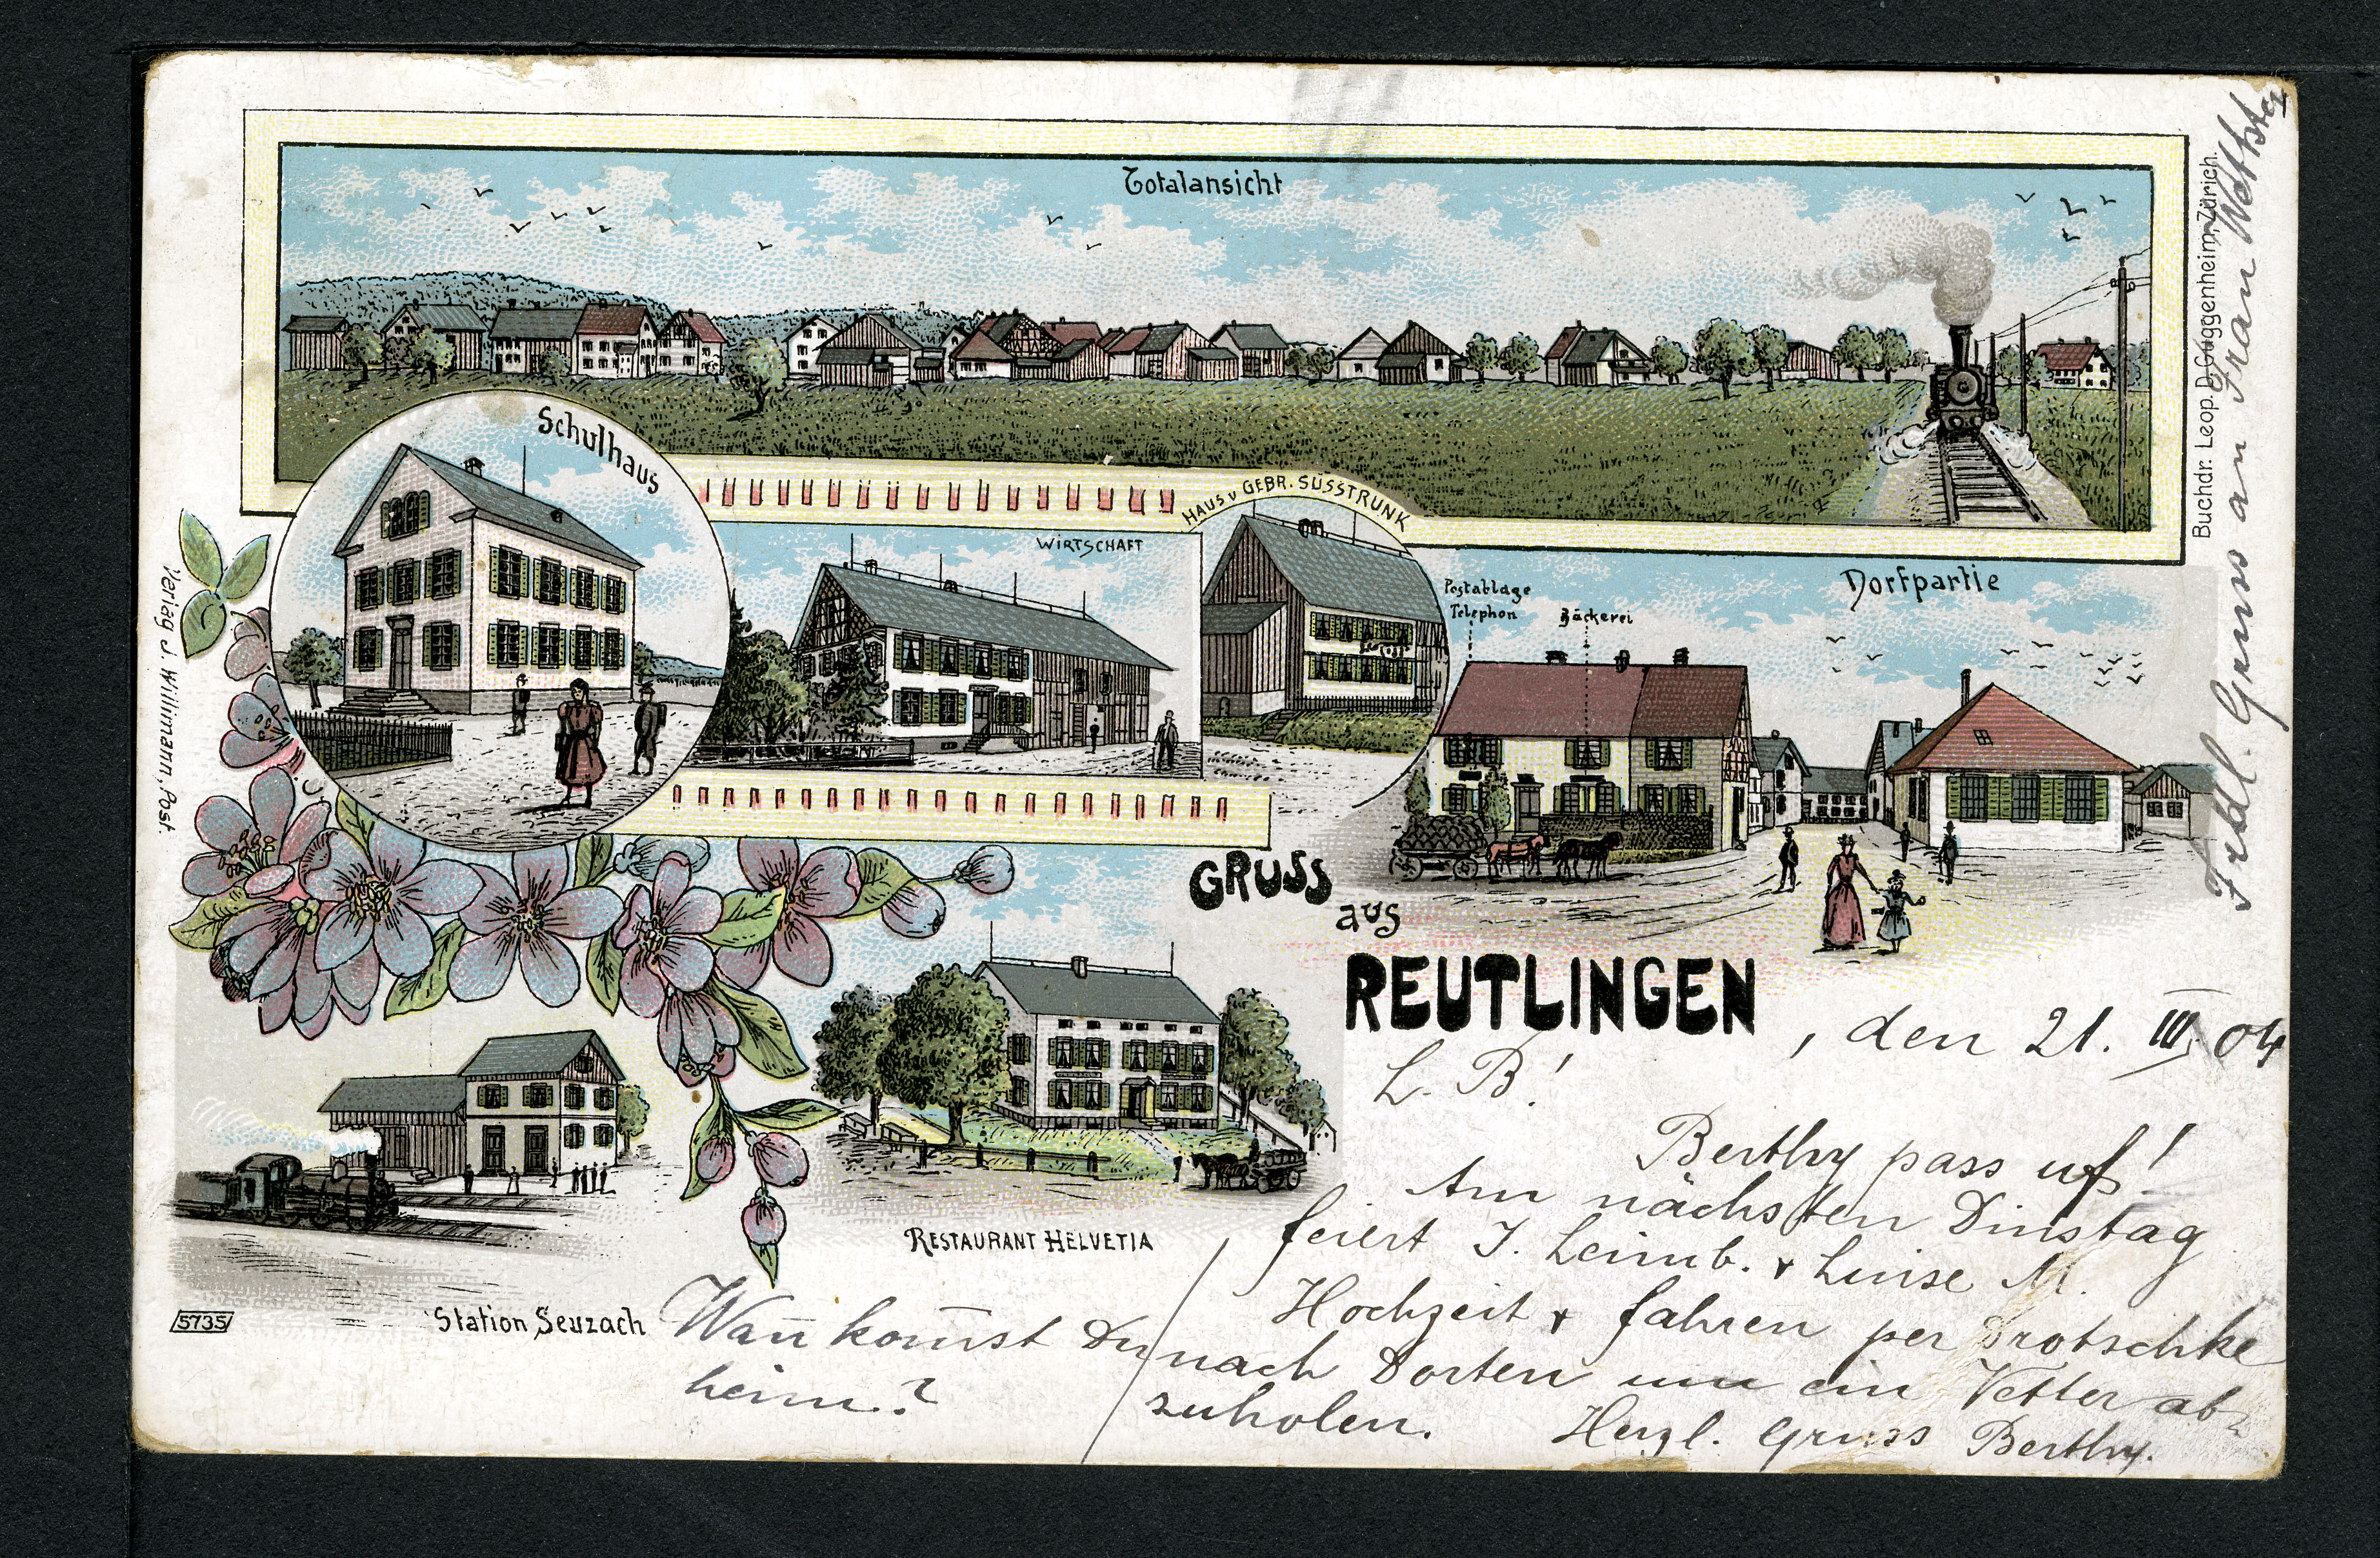 Totalansicht
Buchdr. Leop. D. Guggenheim, Zürich.
Schulhaus
HAUS v GEBR. SÜSSTRUNK
WIRTSCHAFT
Postablage
Telephon
Bäckerei
Dorfpartie
Verlag J. Willimann, Post.
GRUSS
aus
REUTLINGEN
, den 21. III. 04
L. B!
Berthy pass uf!
Am nächsten Dinstag
feiert J. Leimb. & Luise M.
Hochzeit & fahren per Drotschke
nach Dorten um ein Vetter ab-
zuholen. Herzl. Gruss Berthy.
RESTAURANT HELVETIA
Station Seuzach
5735
Wan̄ kom̄st Du
heim.?
Frdl. Gruss an Frau Wettstey